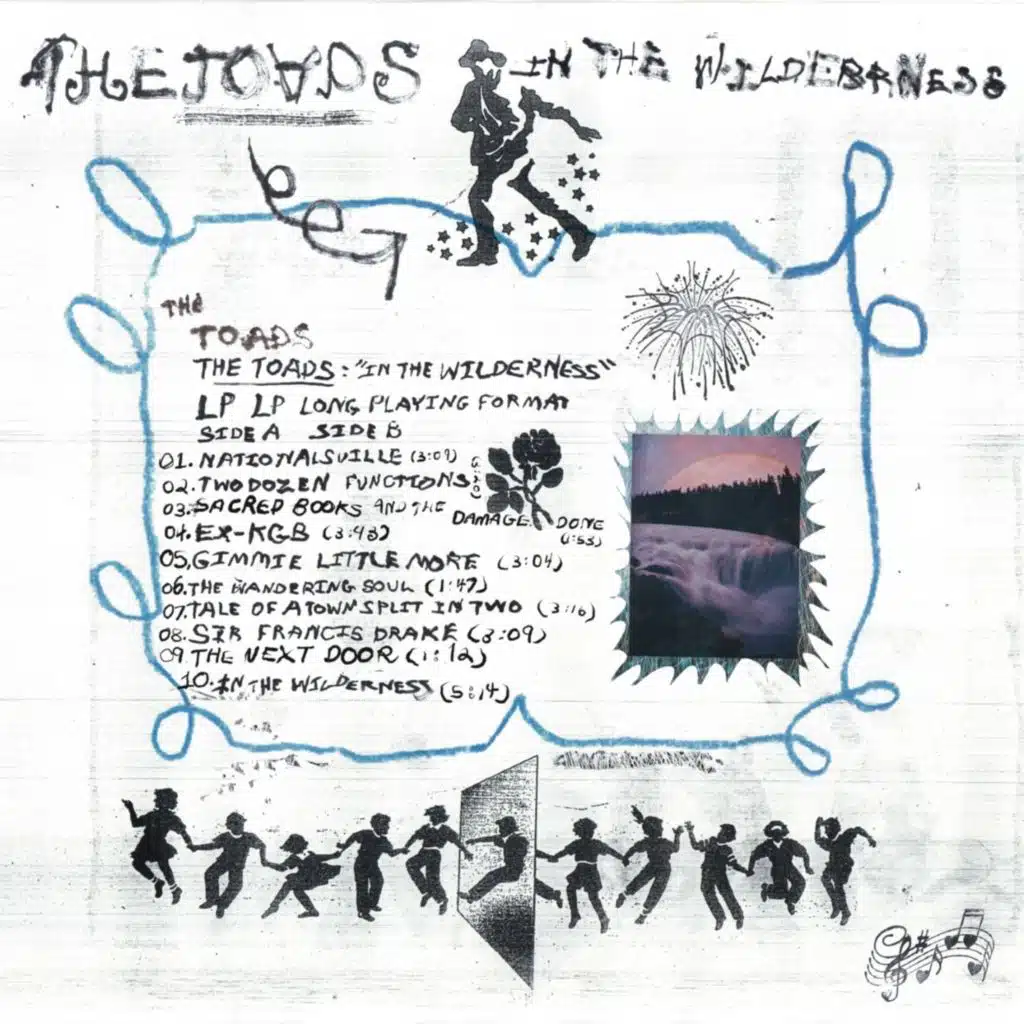 THE TOADS
IN THE WILDERNESS
THE
TOADS
THE TOADS : "IN THE WILDERNESS"
LP LP LONG PLAYING FORMAT
SIDE A SIDE B
01. NATIONALSVILLE (3:09)
02. TWO DOZEN FUNCTIONS
03. SACRED BOOKS AND THE DAMAGE DONE (1:53)
04. EX-KGB (3:43)
05. GIMMIE LITTLE MORE (3:04)
06. THE WANDERING SOUL (1:47)
07. TALE OF A TOWN SPLIT IN TWO (3:16)
08. SIR FRANCIS DRAKE (3:09)
09. THE NEXT DOOR (1:12)
10. IN THE WILDERNESS (5:14)